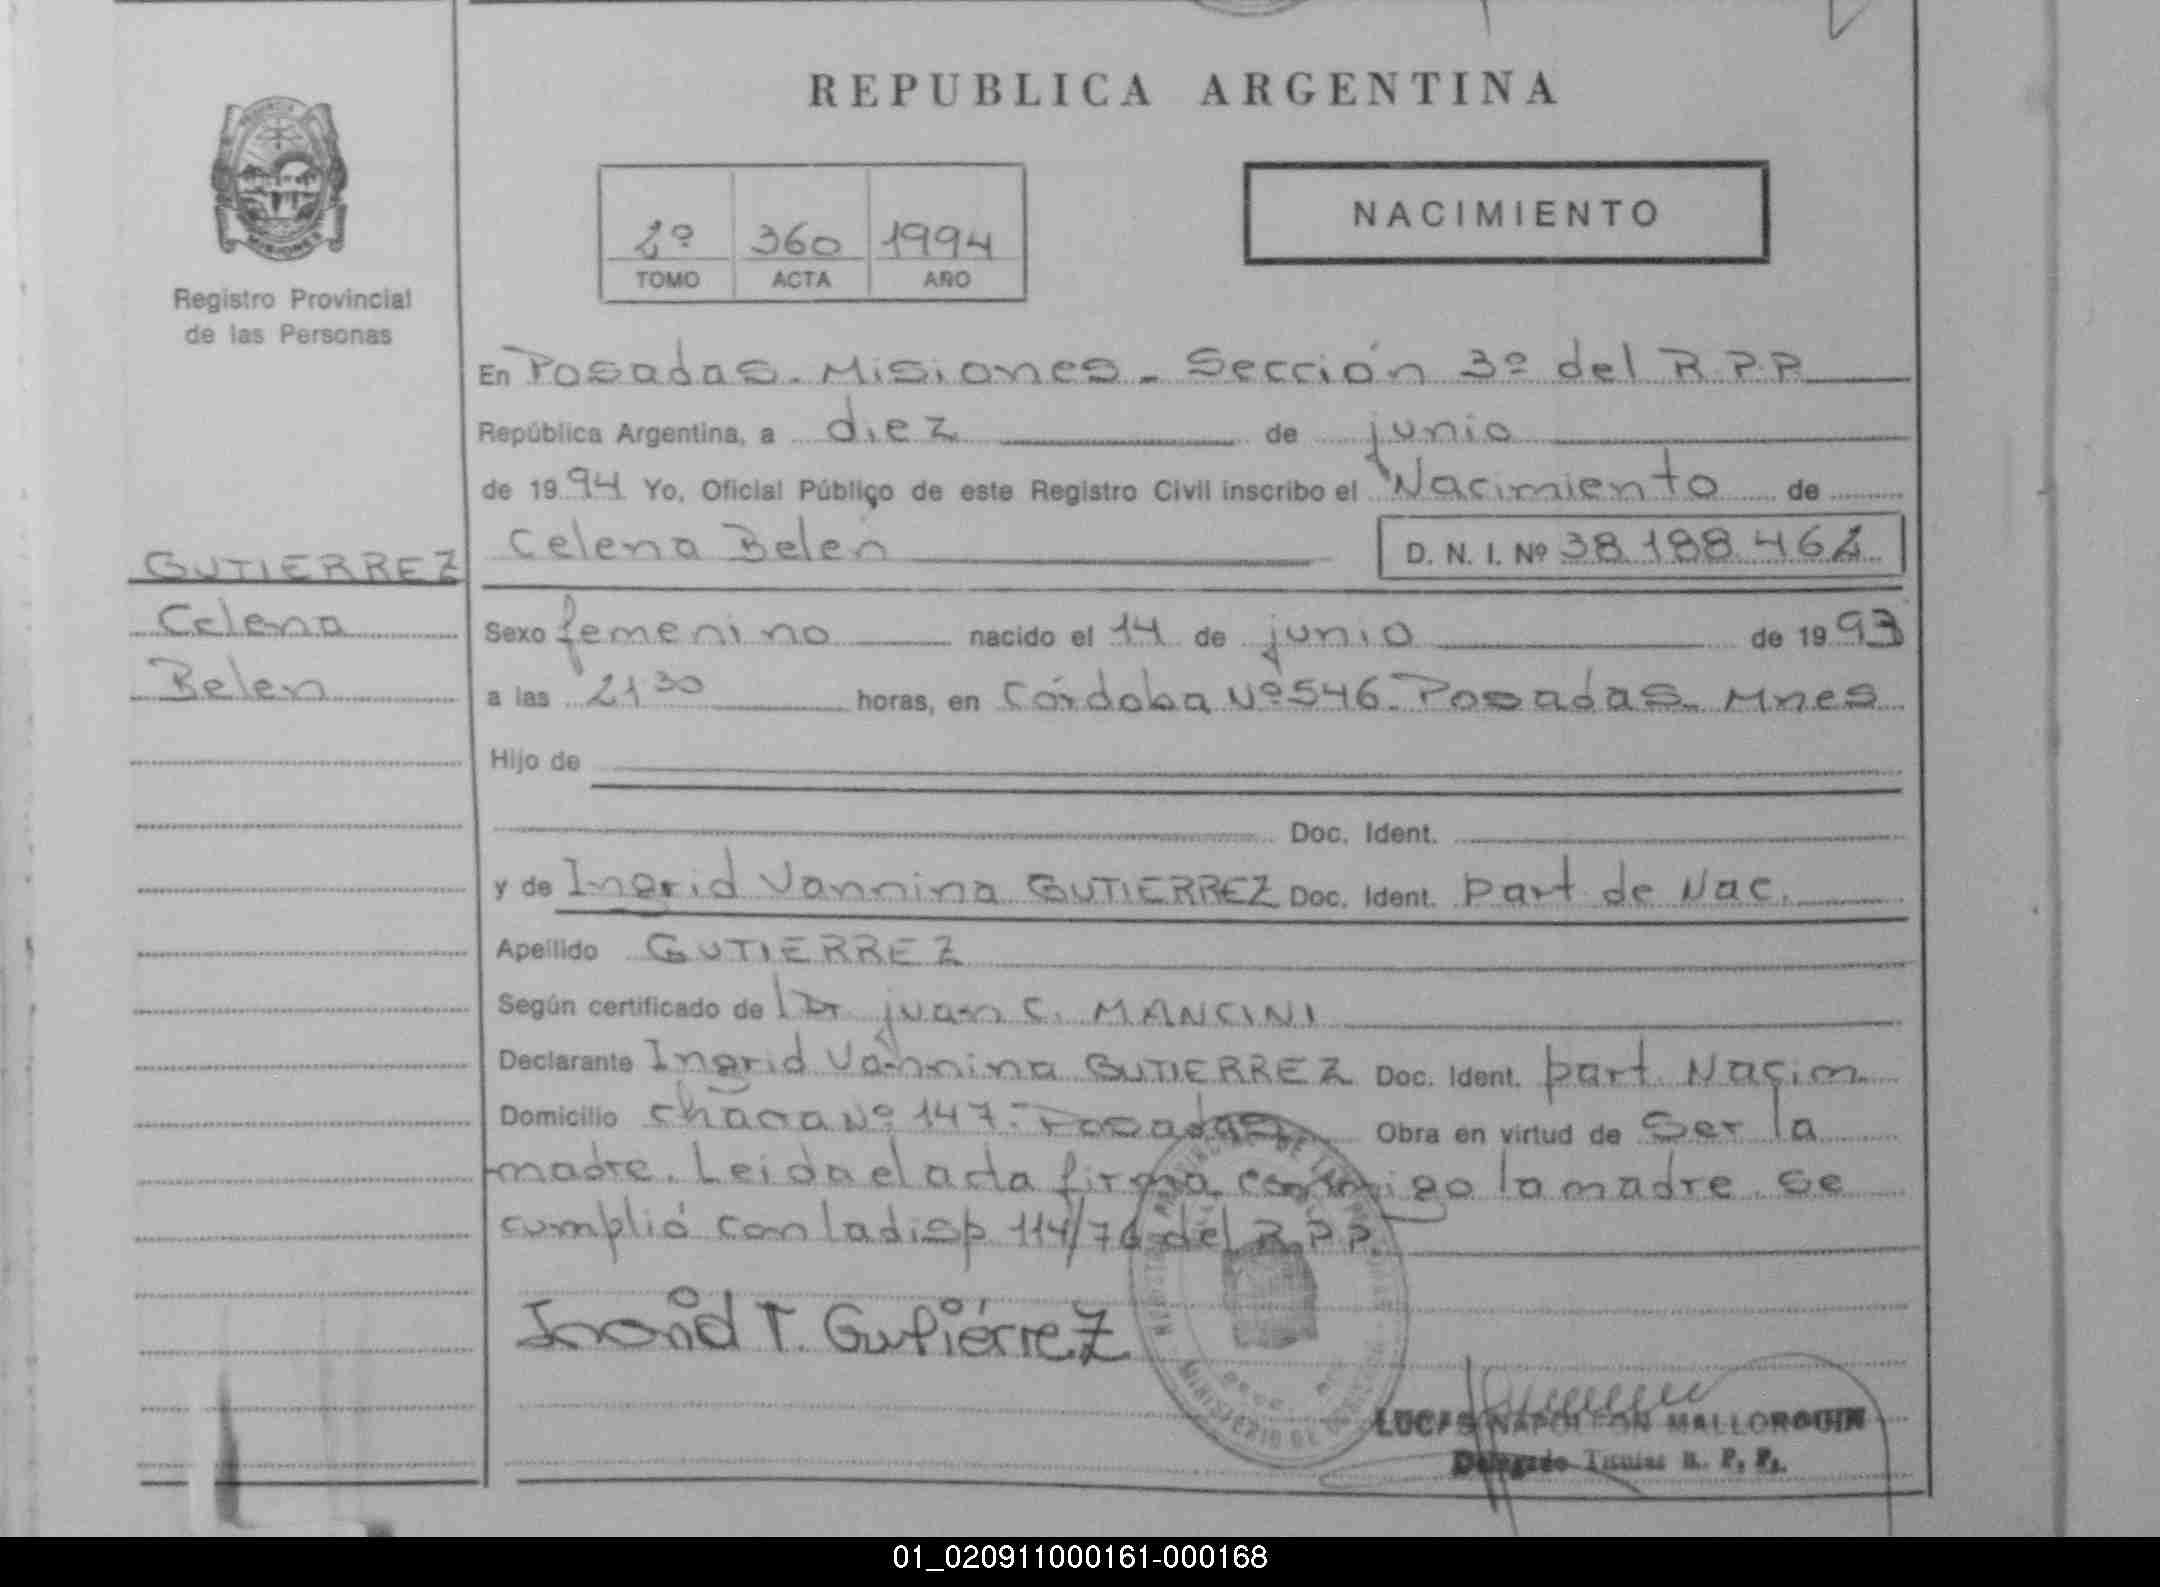 REPUBLICA ARGENTINA
NACIMIENTO
2º 360 1994
TOMO ACTA AÑO
MISIONES
Registro Provincial
de las Personas
En Posadas - Misiones - Sección 3º del R.P.P.
República Argentina, a diez de junio
de 1994 Yo, Oficial Público de este Registro Civil inscribo el Nacimiento de
Celena Belen D. N. I. Nº 38.188.462
GUTIERREZ
Celena
Belen
Sexo femenino nacido el 14 de junio de 1993
a las 21 30 horas, en Córdoba Nº 546 - Posadas - Mnes
Hijo de
Doc. Ident.
y de Ingrid Vannina GUTIERREZ Doc. Ident. part de Nac.
Apellido GUTIERREZ
Según certificado de Dr. Juan C. MANCINI
Declarante Ingrid Vannina GUTIERREZ Doc. Ident. part. Nacim
Domicilio Nº 147 - Posadas Obra en virtud de Ser la
madre. Leida el acta firma conmigo la madre. Se
cumplió con la disp 114/76 del R.P.P.
Gutiérrez
MINISTERIO DE
LUCAS NAPOLEON MALLORQUIN
Delegado R. P. P.
01_020911000161-000168